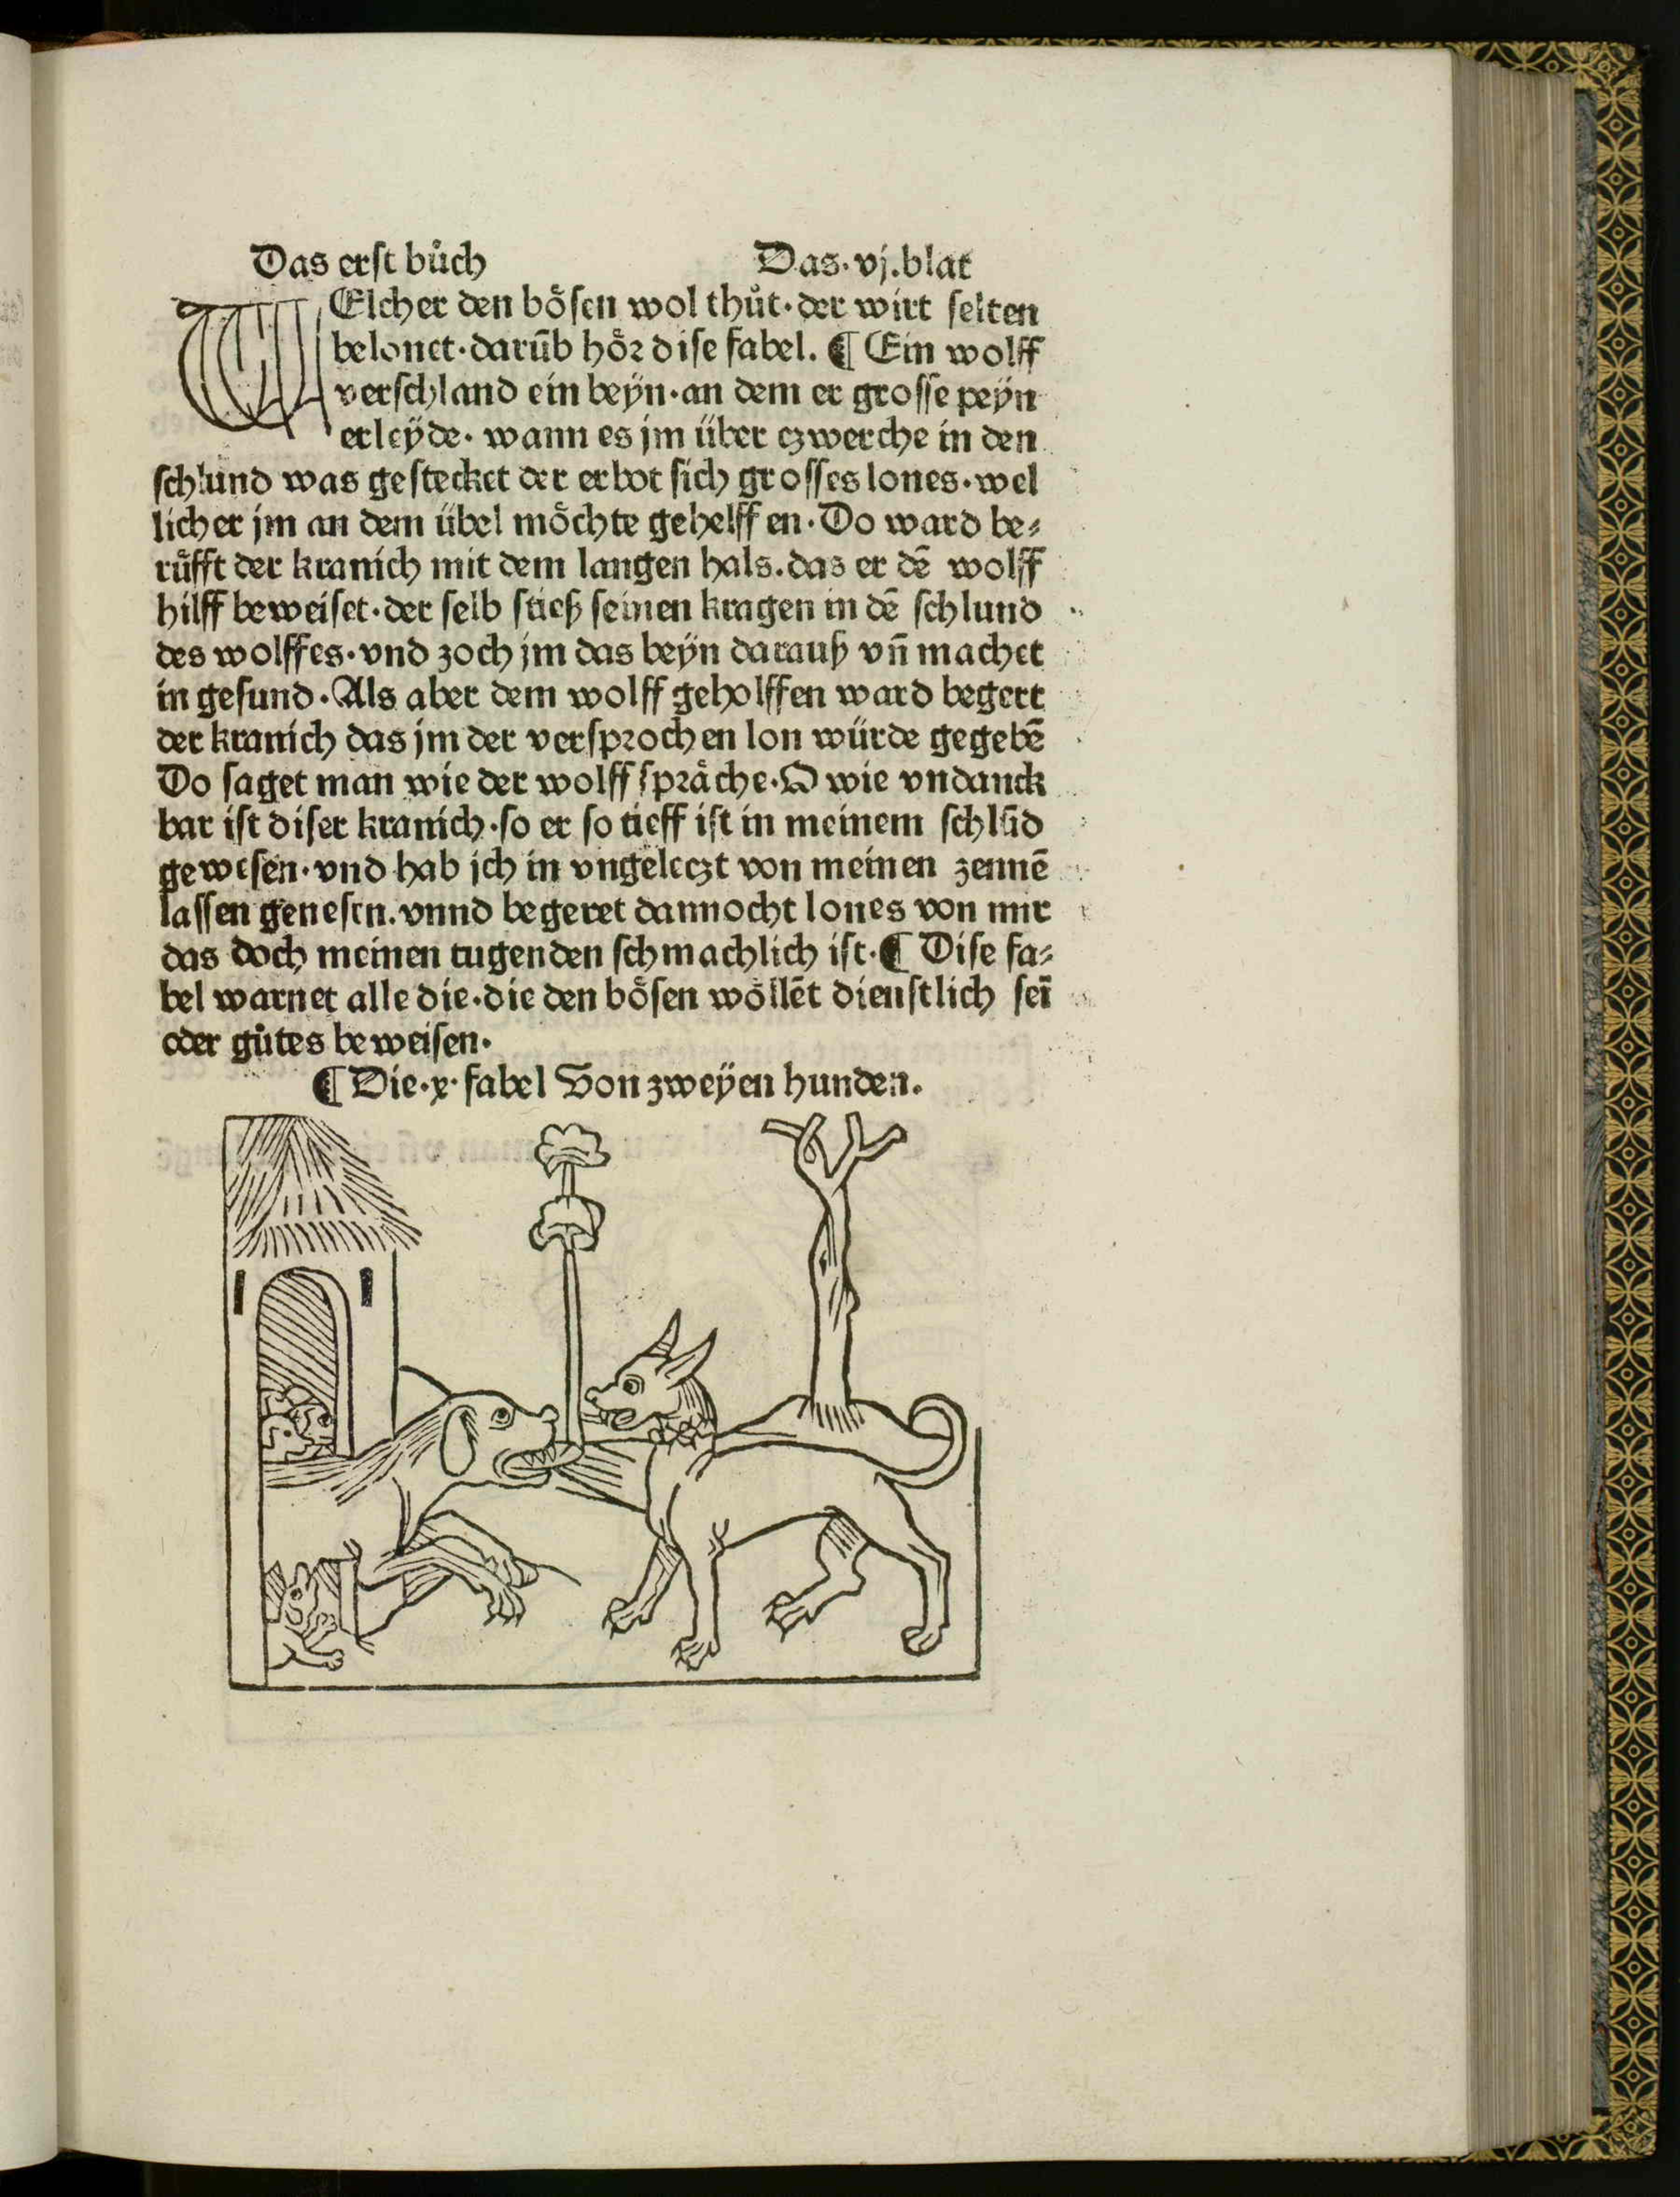 Das erst bůch Das·vj.blat
WElcher den bösen wol thůt·der wirt selten
belonet·darūb hör dise fabel. ¶ Ein wolff
verschland ein beÿn·an dem er grosse peÿn
erleÿde· wann es jm über czwerche in den
schlund was gestecket der erbot sich grosses lones·wel
licher jm an dem übel möchte gehelffen·Do ward be⸗
rüfft der kranich mit dem langen hals.das er dē wolff
hilff beweiset·der selb stieß seinen kragen in dē schlund
des wolffes·vnd zoch jm das beÿn darauß vn̄ machet
in gesund·Als aber dem wolff geholffen ward begert
der kranich das jm der versprochen lon würde gegebē
Do saget man wie der wolff spräche·O wie vndanck
bar ist diser kranich·so er so tieff ist in meinem schlūd
gewesen·vnd hab jch in vngeleczt von meinen zennē
lassen genesen.vnnd begeret dannocht lones von mir
das doch meinen tugenden schmachlich ist·¶ Dise fa⸗
bel warnet alle die·die den bösen wöllēt dienstlich seī
oder gůtes beweisen·
¶ Die·x·fabel Von zweÿen hunden.